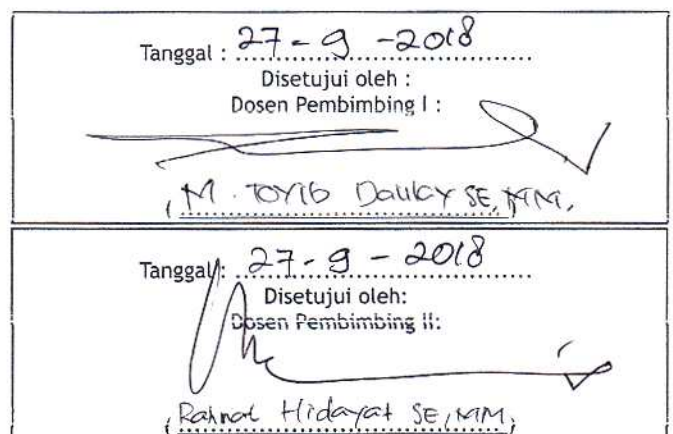 Tanggal : 27 - 9 - 2018
Disetujui oleh :
Dosen Pembimbing I :
( M. TOYIB Daulay SE, MM, )
Tanggal : 27 - 9 - 2018
Disetujui oleh:
Dosen Pembimbing II:
( Rahmat Hidayat SE, MM, )